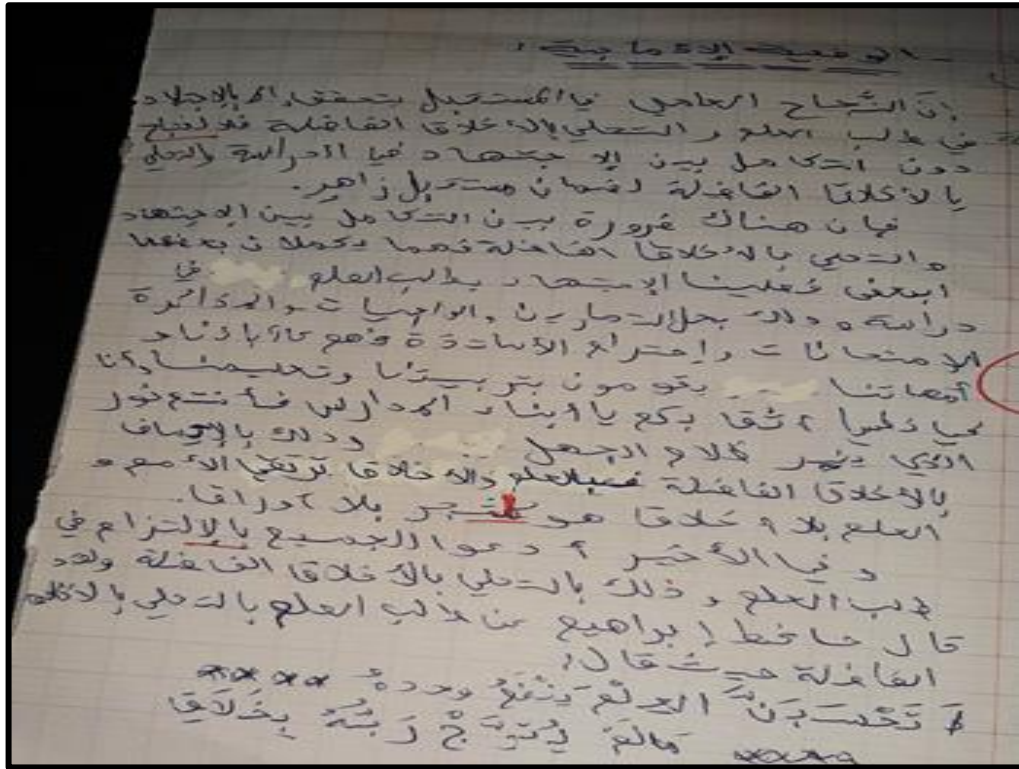 الوضعية الإدماجية:
إن النجاح العلمي في المستقبل يتحقق إلا بالإجتهاد
في طلب العلم و التحلي بالأخلاق الفاضلة فلا نجاح
دون التكامل بين الإجتهاد في الدراسة والتحلي
بالأخلاق الفاضلة لضمان مستقبل زاهر.
فإن هناك ضرورة بين التكامل بين الإجتهاد
والتحلي بالأخلاق الفاضلة فهما يكملان بعضهما
البعض فعلينا الإجتهاد بطلب العلم في
دراسة وذلك بحل التمارين والواجبات والمذاكرة
الإمتحانات وإحترام الأساتذة فهم
أمهاتنا يقومون بتربيتنا وتعليمنا وأنا
أثق بكم يا أبناء المدارس فأنتم نور
الذي ينير ظلام الجهل وذلك بالإتصاف
بالأخلاق الفاضلة فبالعلم والأخلاق ترتقي الأمم و
العلم بلا أخلاق هو كشجر بلا أوراق.
و في الأخير أدعوا الجميع بالإلتزام في
طلب العلم و ذلك بالتحلي بالأخلاق الفاضلة ولقد
قال حافظ إبراهيم عن طلب العلم بالتحلي بالأخلاق
الفاضلة حيث قال:
لا تَحْسَبَنَّ العِلْمَ يَنْفَعُ وحدهُ ××××
×××× مالمَ يُتَوَّجْ رَبُّهُ بِخَلَاقِ